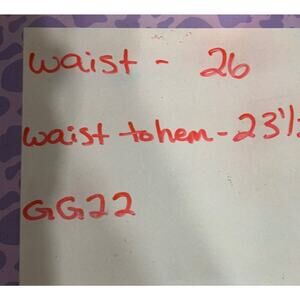 waist - 26
waist to hem - 23 1/2
GG22